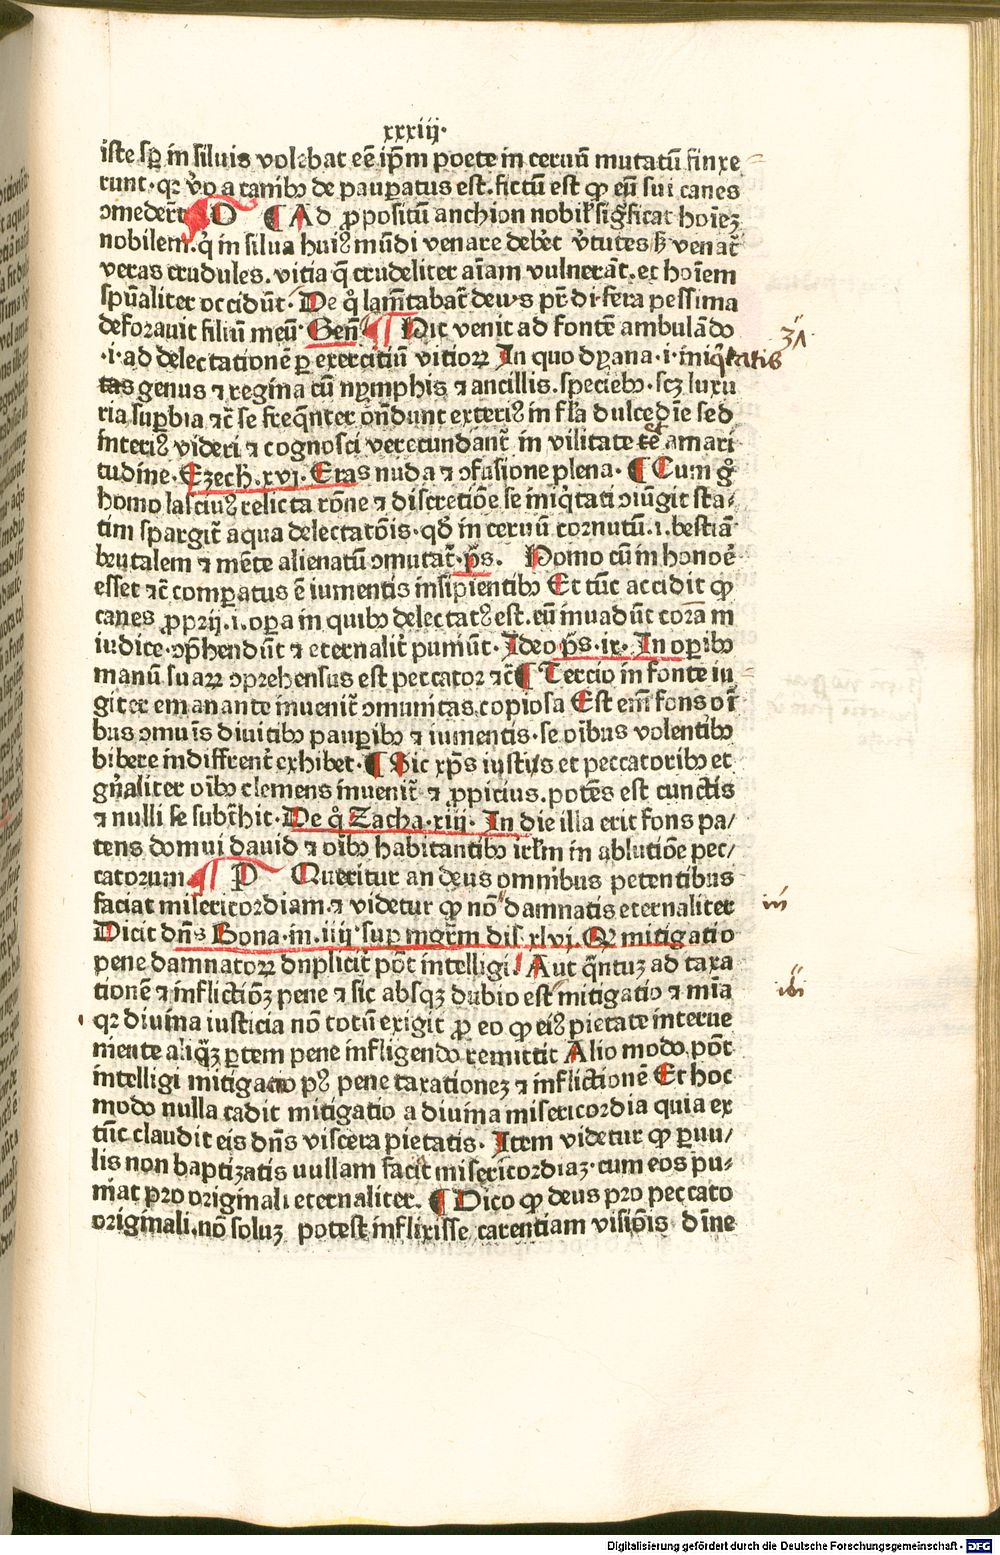 xxxiij.
iste sꝑ in siluis volebat eē ip̄m poete in ceruū mutatū finxe
runt. qꝛ v̓o a canibꝰ de pauꝑatus est. fictū est ꝙ eū sui canes
ꝯmeder̄t D ¶ Ad ꝓpositū anchion nobil̓ sig̓ficat hoiez
nobilem. q̇ in silua huiꝰ mūdi venare debet v̓tutes venat̄
veras crudules. vitia q̄ crudeliter aīam vulnerāt. et hoīem
spūaliter occidūt. De q̊ lamētabat̄ deus pr̄ di. fera pessima
deforauit filiū meū. Geñ ¶ Hic venit ad fontē ambulādo
.i. ad delectationē ꝑ exercitiū vitioꝝ In quo dyana .i. iniq̇tatis
tas genus ⁊ regina cū nymphis ⁊ ancillis. speciebꝰ. scꝫ luxu
ria suꝑbia ⁊c̄ se freq̄nter on̄dunt exteriꝰ in fl̓a dulcedīe sed
interiꝰ videri ⁊ cognosci verecundant̄ in vilitate et amari
tudine. Ezech. xvj. Eras nuda ⁊ ꝯfusione plena. ¶ Cum g̊
homo lasciuꝰ relicta rōne ⁊ discretiōe se iniq̇tati ꝯiūgit sta⸗
tim spargit̄ aqua delectatōis. qd̓ in ceruū cornutū .i. bestiā
brutalem ⁊ mēte alienatū ꝯmutat̄. ps̄. Homo cū in honoē
esset ⁊c̄ comꝑatus ē iumentis insipientibꝰ Et tūc accidit ꝙ
canes ꝓprij .i. oꝑa in quibꝰ delectatꝰ est. eū inuadūt corā in
iudice. ꝯp̄hendūt ⁊ eternalit̄ puniūt. Ideo ps̄. ix. In oꝑibꝰ
manū suaꝝ ꝯprehensus est peccator ⁊c̄ ¶ Tercio in fonte iu
giter emanante inuenit̄ ꝯmunitas copiosa Est em̄ fons oī
bus ꝯmuīs diuitibꝰ pauꝑibꝰ ⁊ iumentis. se oībus volentibꝰ
bibere indiffrent̄ exhibet. ¶ Sic xp̄s iustijs et peccatoribꝰ et
gn̄aliter oībꝰ clemens inuenit̄ ⁊ ꝓpicius. potēs est cunctis
⁊ nulli se subt̄hit. De q̊ Zacha. xiij. In die illa erit fons pa/
tens domui dauid ⁊ oībꝰ habitantibꝰ irl̄m in ablutiōe pec/
catorum ¶ P Queritur an deus omnibus petentibus
faciat misericordiam. ⁊ videtur ꝙ nō damnatis eternaliter
Dicit dn̄s Bona. in. iiij. suꝑ mgr̄m dis. xlvj. Qꝛ mitigatio
pene damnatoꝝ dnplicit̄ pōt intelligi. Aut q̄ntuꝫ ad taxa
tionē ⁊ inflictiōꝫ pene ⁊ sic absqꝫ dubio est mitigatio ⁊ mīa
qꝛ diuina iusticia nō totū exigit ꝓ eo ꝙ eiꝰ pietate interue
niente aliq̄ꝫ ꝑtem pene infligendo remittit Alio modo pōt
intelligi mitigatio pꝰ pene taxationeꝫ ⁊ inflictionē Et hoc
modo nulla cadit mitigatio a diuina misericordia quia ex
tūc claudit eis dn̄s viscera pietatis. Item videtur ꝙ ꝑuu/
lis non baptizatis nullam facit misericordiaꝫ. cum eos pu⸗
niat pro originali eternaliter. ¶ Dico ꝙ deus pro peccato
originali. nō soluꝫ potest inflixisse carentiam visiōis diīne
Digitalisierung gefördert durch die Deutsche Forschungsgemeinschaft - DFG